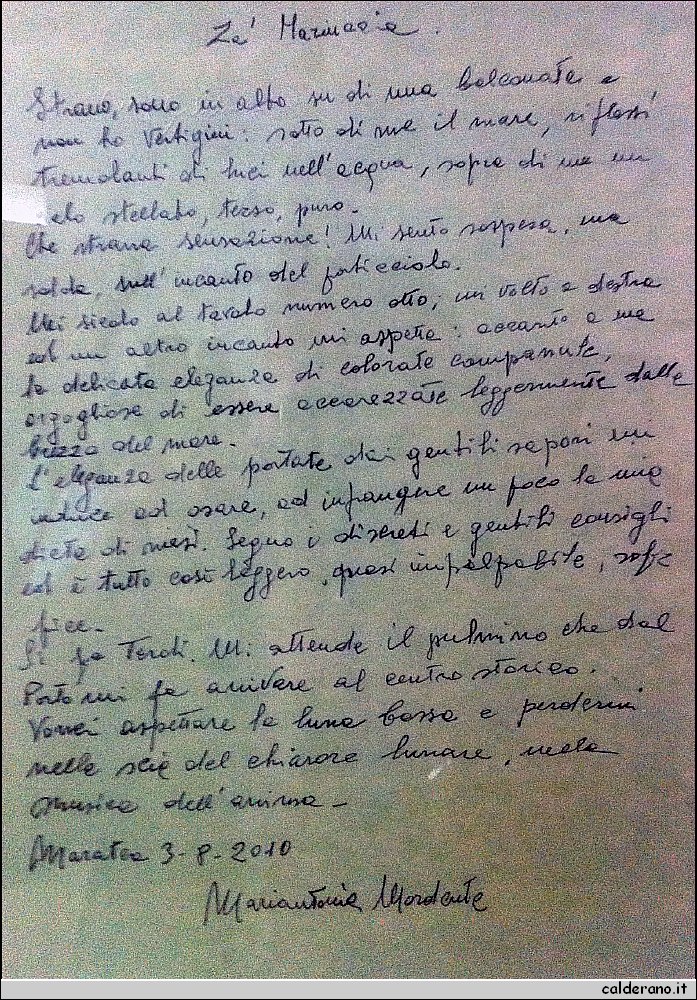 Za' Mariuccia.
Strano, sono in alto su di una balconata e
non ho vertigini: sotto di me il mare, riflessi
tremolanti di luci nell'acqua, sopra di me un
cielo stellato, terso, puro.
Che strana sensazione! Mi sento sospesa, ma
salda, sull'incanto del porticciolo.
Mi siedo al tavolo numero otto; mi volto a destra
ed un altro incanto mi aspetta: accanto a me
la delicata eleganza di colorate campanule,
orgogliose di essere accarezzate leggermente dalla
brezza del mare.
L'eleganza delle portate dai gentili sapori mi
induce ad osare, ad infrangere un poco la mia
dieta di mesi. Seguo i discreti e gentili consigli
ed è tutto così leggero, quasi impalpabile, soffi
fice.
Si fa tardi. Mi attende il pulmino che dal
Porto mi fa arrivare al centro storico.
Vorrei aspettare la luna bassa e perdermi
nelle scie del chiarore lunare, nella
musica dell'anima.
Maratea 3-8-2010
Mariantonia Mordente
calderano.it